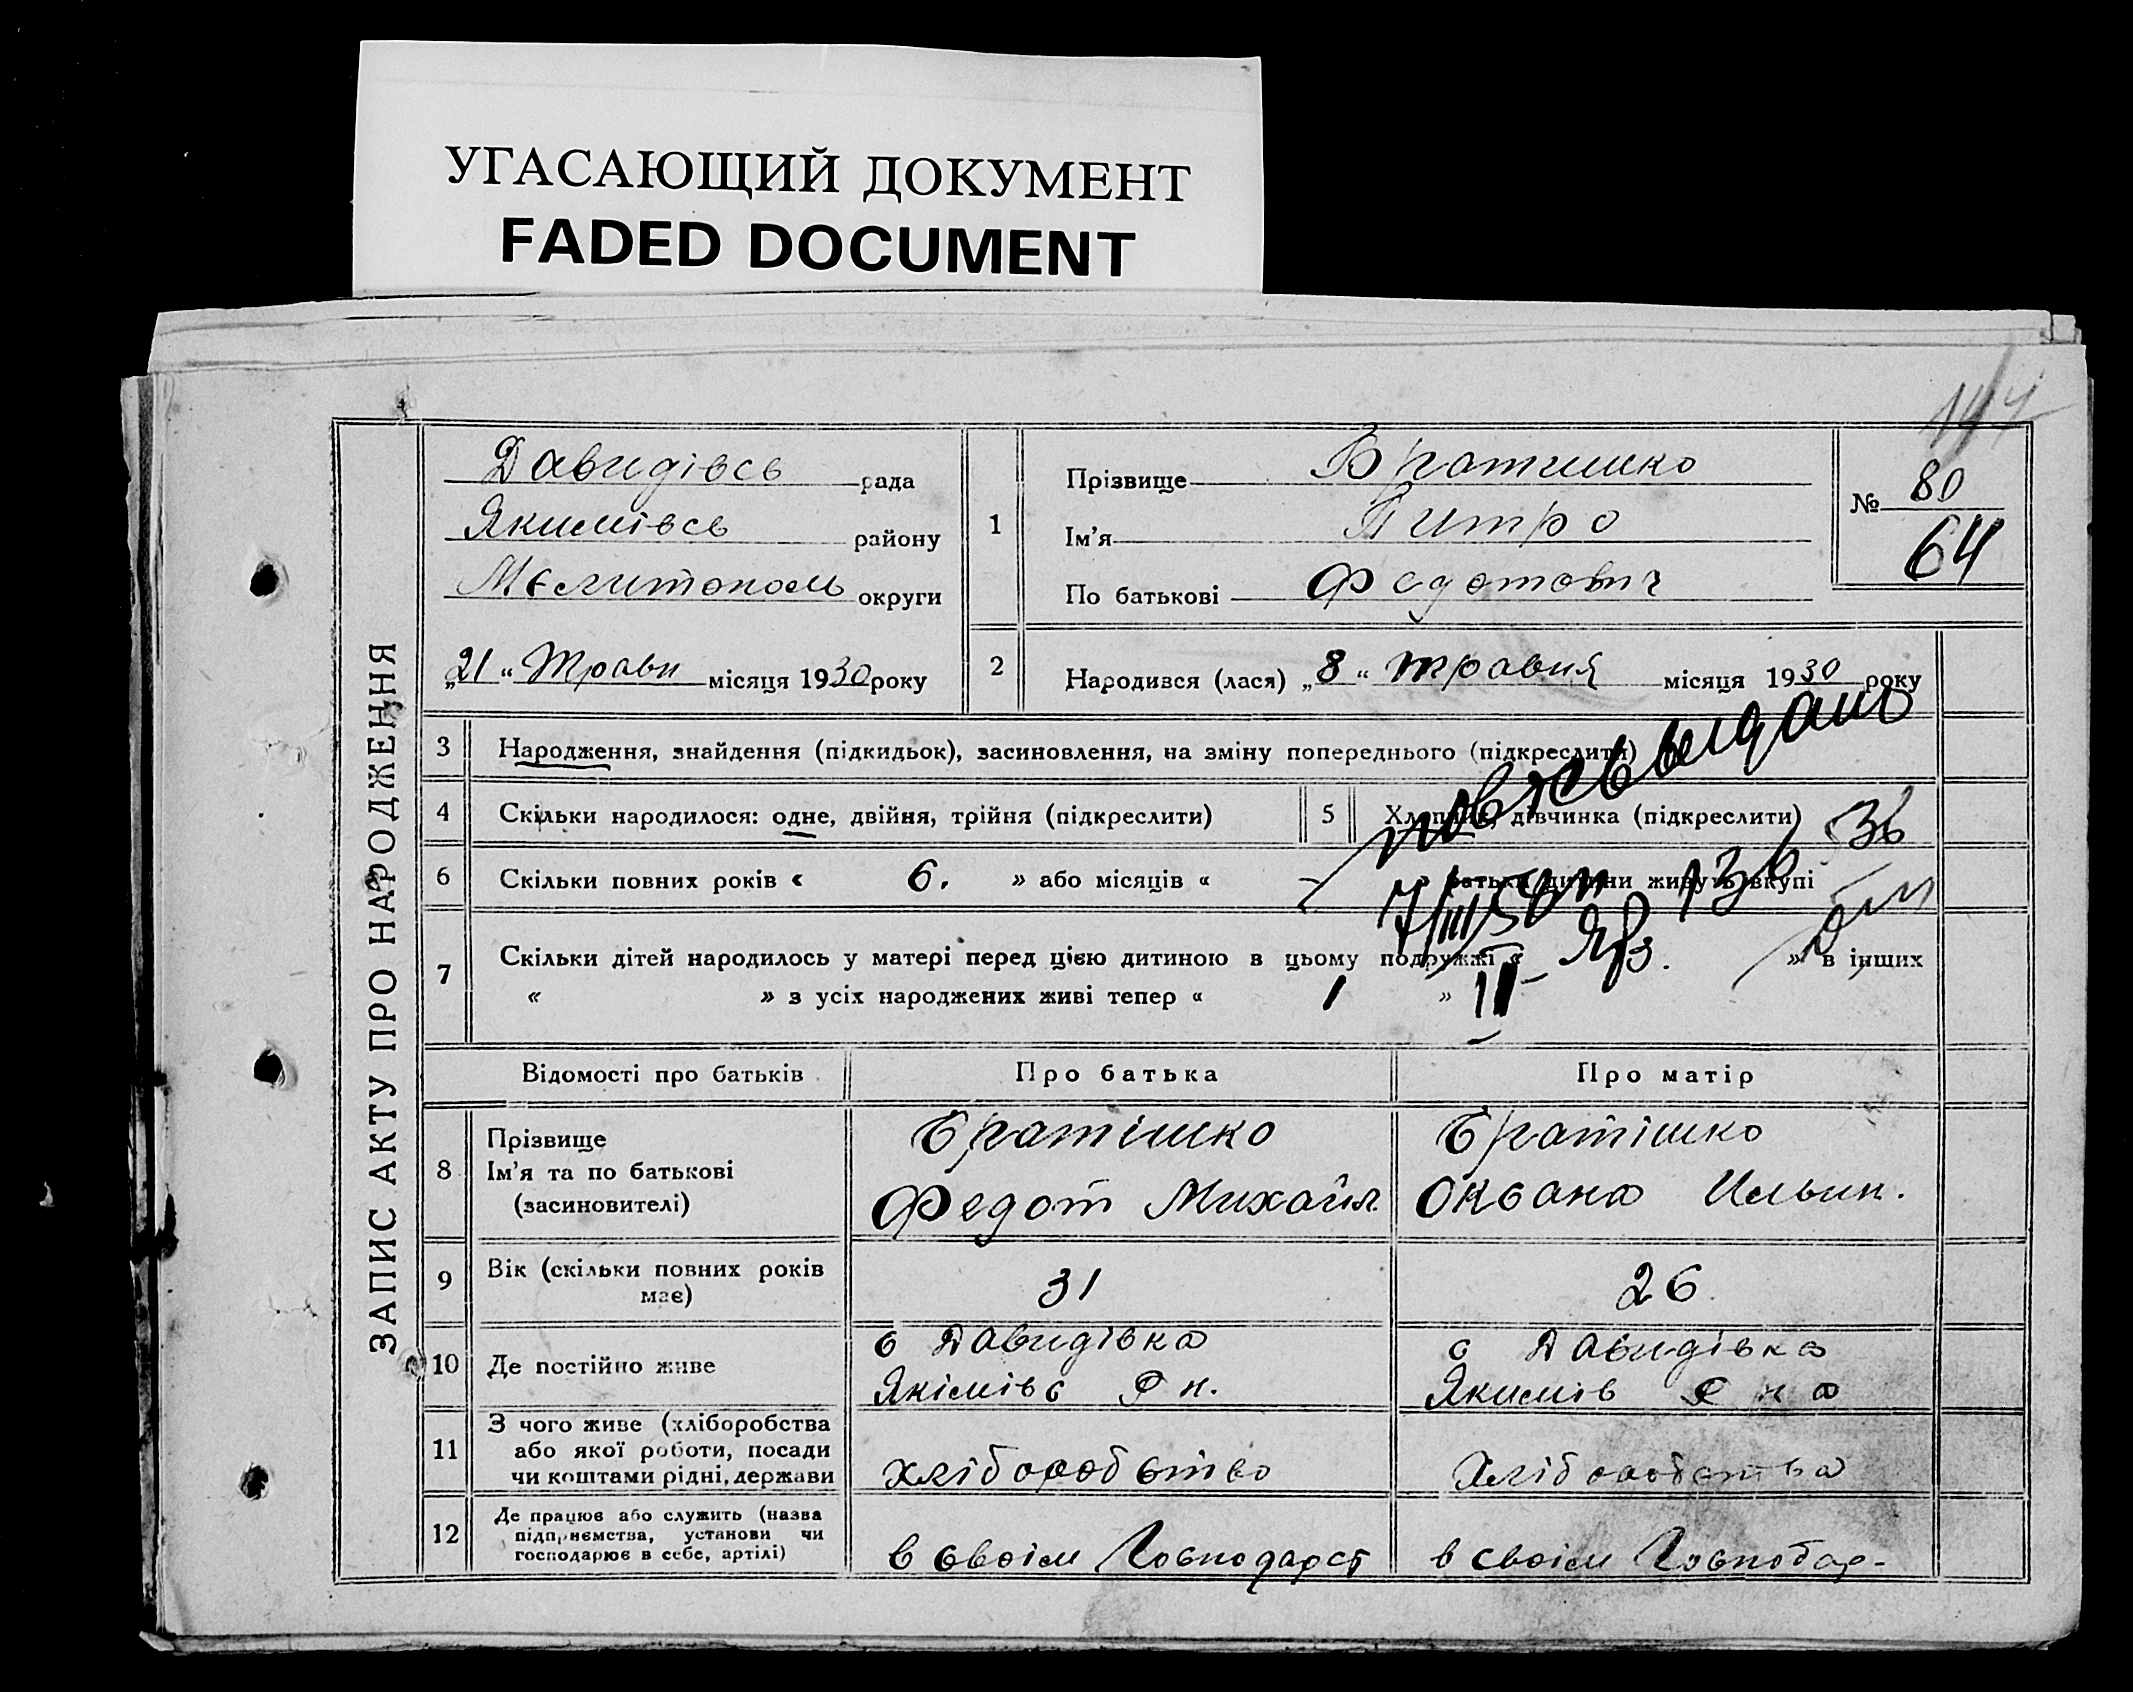 УГАСАЮЩИЙ ДОКУМЕНТ
FADED DOCUMENT
ЗАПИС АКТУ ПРО НАРОДЖЕННЯ
Давидівсь рада
Якимівсь району
Мелитополь округи
„21“ Травн місяця 1930 року
1
Прізвище Братишко
Ім'я Питро
По батькові Федотович
№ 80
64
2
Народився (лася) „8“ травня місяця 1930 року
3 Народження, знайдення (підкидьок), засиновлення, на зміну попереднього (підкреслити)
4 Скільки народилося: одне, двійня, трійня (підкреслити)
5 Хлопчик, дівчинка (підкреслити)
6 Скільки повних років « 6. » або місяців « – » батьки дитини живуть вкупі
7 Скільки дітей народилось у матері перед цією дитиною в цьому подружжі « » в інших
« » з усіх народжених живі тепер « 1 »
Відомості про батьків
Про батька
Про матір
8 Прізвище
Ім'я та по батькові
(засиновителі)
Братішко
Федот Михайл
Братішко
Оксана Ильин.
9 Вік (скільки повних років
має)
31
26
10 Де постійно живе
с Давидівка
Якімівс Рн.
с Давидівка
Якимів Рна
11 З чого живе (хліборобства
або якої роботи, посади
чи коштами рідні, держави
хліборобство
хліборобства
12 Де працює або служить (назва
підприємства, установи чи
господарює в себе, артілі)
в своїм Господарст
в своїм Господар-